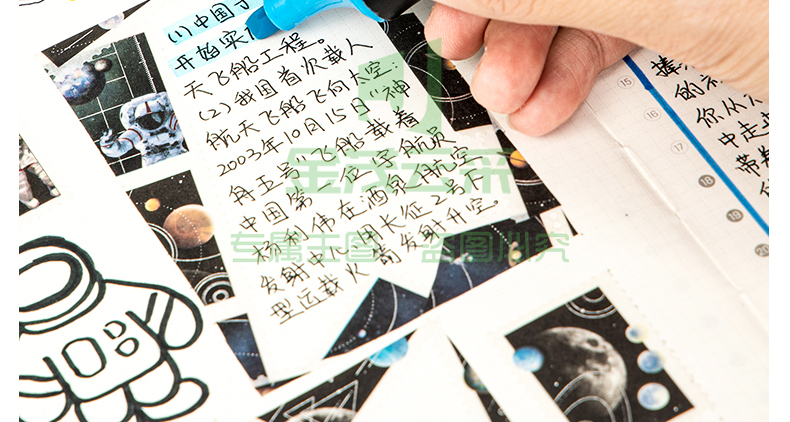 (1)中国于
开始实
天飞船工程。
(2)我国首次载人
航天飞船飞向太空:
2003年10月15日"神
舟五号"飞船载着
中国第一位宇航员
杨利伟在酒泉航空
发射中心用长征2号F
型运载火箭发射升空。
金茂云采
专属主图 盗图必究
的
你从
中走
带着
15
16
17
18
19
20